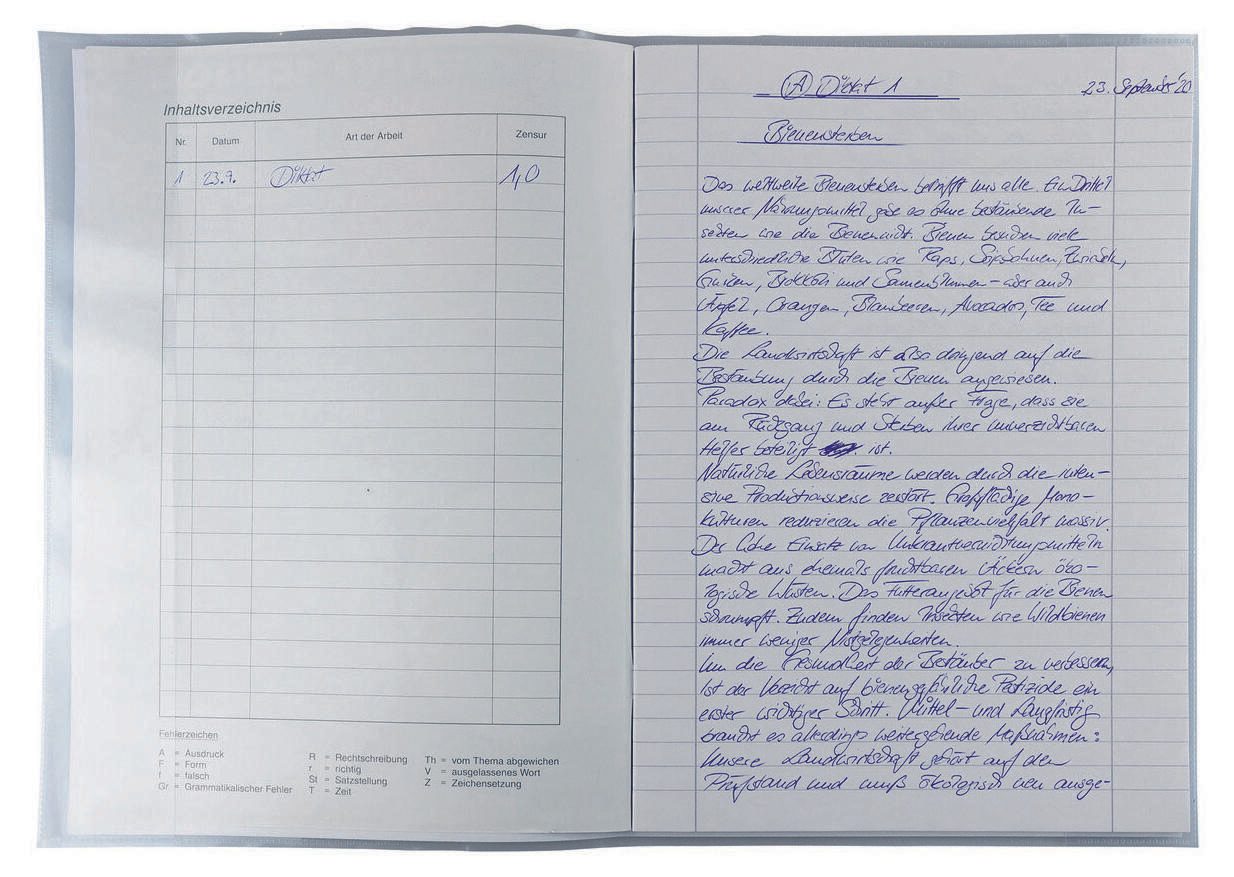 Inhaltsverzeichnis
Nr. Datum Art der Arbeit Zensur
1 23.9. Diktat 1,0
Fehlerzeichen
A = Ausdruck
F = Form
f = falsch
Gr = Grammatikalischer Fehler
R = Rechtschreibung
r = richtig
St = Satzstellung
T = Zeit
Th = vom Thema abweichen
V = ausgelassenes Wort
Z = Zeichensetzung
A Diktat 1 23. September '20
Bienensterben
Das weltweite Bienensterben betrifft uns alle. Ein Drittel
unserer Nahrungsmittel gäbe es ohne bestäubende In-
sekten wie die Bienen nicht. Bienen besuchen viele
unterschiedliche Blüten wie Raps, Sojabohnen, Zwiebeln,
Gurken, Brokkoli und Sonnenblumen – aber auch
Äpfel, Orangen, Blaubeeren, Avocados, Tee und
Kaffee.
Die Landwirtschaft ist also dringend auf die
Bestäubung durch die Bienen angewiesen.
Paradox dabei: Es steht außer Frage, dass sie
am Rückgang und Sterben ihrer unverzichtbaren
Helfer beteiligt ist.
Natürliche Lebensräume werden durch die inten-
sive Productionsweise zerstört. Großflächige Mono-
kulturen reduzieren die Pflanzenvielfalt massiv.
Der hohe Einsatz von Unkrautvernichtungsmitteln
macht aus ehemals fruchtbaren Äckern öko-
logische Wüsten. Das Futterangebot für die Bienen
schrumpft. Zudem finden Insekten wie Wildbienen
immer weniger Nistgelegenheiten.
Um die Gesundheit der Bestäuber zu verbessern,
ist der Verzicht auf bienengefährliche Pestizide ein
erster wichtiger Schritt. Mittel- und Langfristig
braucht es allerdings weitergehende Maßnahmen:
Unsere Landwirtschaft gehört auf den
Prüfstand und muß ökologisch neu ausge-